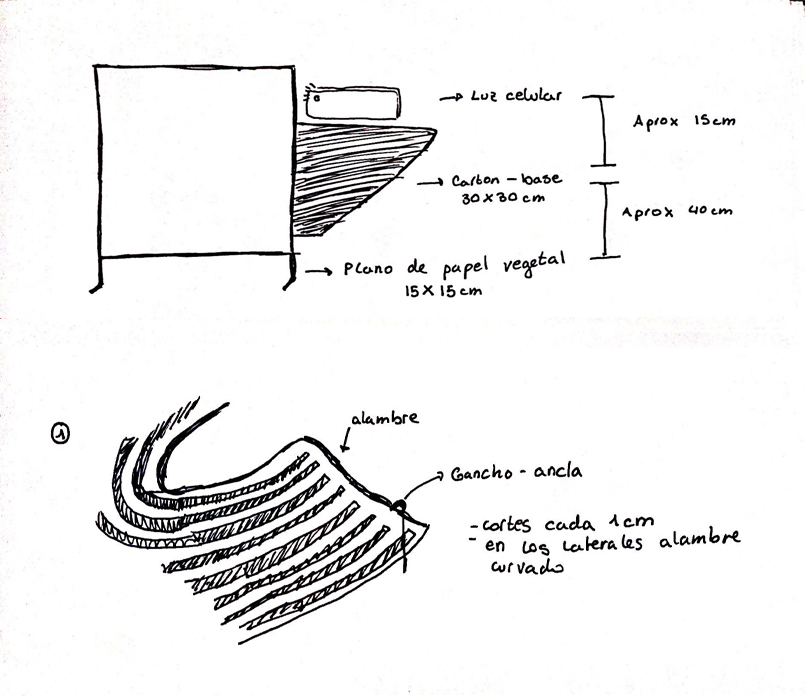 Luz celular
Aprox 15cm
Carton - base
30 x 30 cm
Aprox 40cm
Plano de papel vegetal
15 x 15 cm
1
alambre
Gancho - ancla
- cortes cada 1cm
- en los laterales alambre
curvado